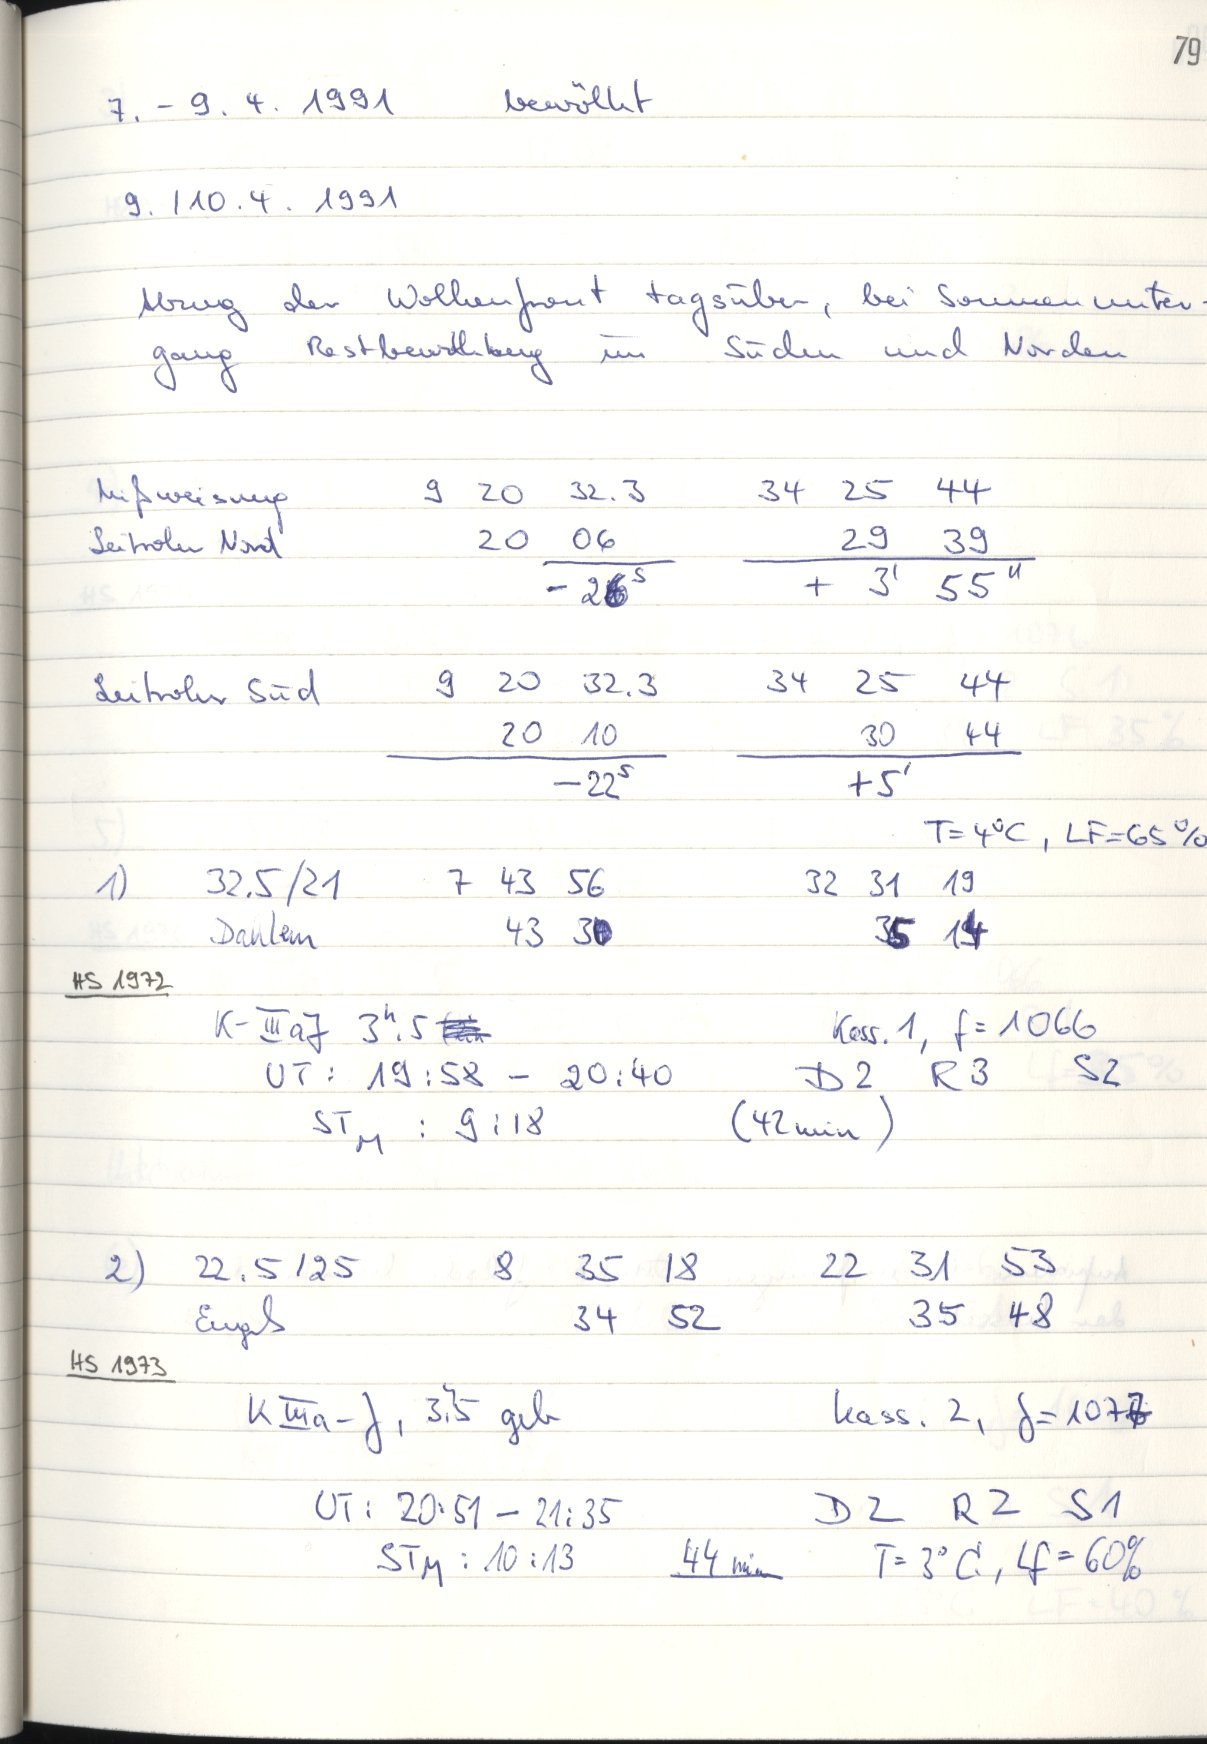 79
7. - 9. 4. 1991 bewölkt
9. / 10. 4. 1991
Abzug der Wolkenfront tagsüber, bei Sonnenunter-
gang Restbewölkung im Süden und Norden
Mißweisung 9 20 32.3 34 25 44
Leitrohr Nord 20 06 29 39
- 26ˢ + 3' 55"
Leitrohr Süd 9 20 32.3 34 25 44
20 10 30 44
- 22ˢ + 5'
T = 4°C, LF = 65%
1) 32.5/21 7 43 56 32 31 19
Dahlem 43 30 35 14
HS 1972
K-IIIaJ 3ʰ.5 Kass. 1, f = 1066
UT: 19:58 - 20:40 D2 R3 S2
STM : 9:18 (42 min)
2) 22.5/25 8 35 18 22 31 53
Engels 34 52 35 48
HS 1973
K IIIa-J, 3ʰ.5 geb Kass. 2, f = 1077
UT: 20:51 - 21:35 D2 R2 S1
STM : 10:13 44 min T = 3°C, LF = 60%